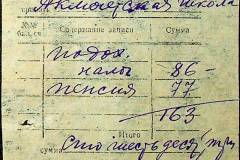 Акмолинская школа
№
Содержание записи
Сумма
подох.
налог 86-
пенсия 77
163
Итого
сумма Сто шестьдесят три